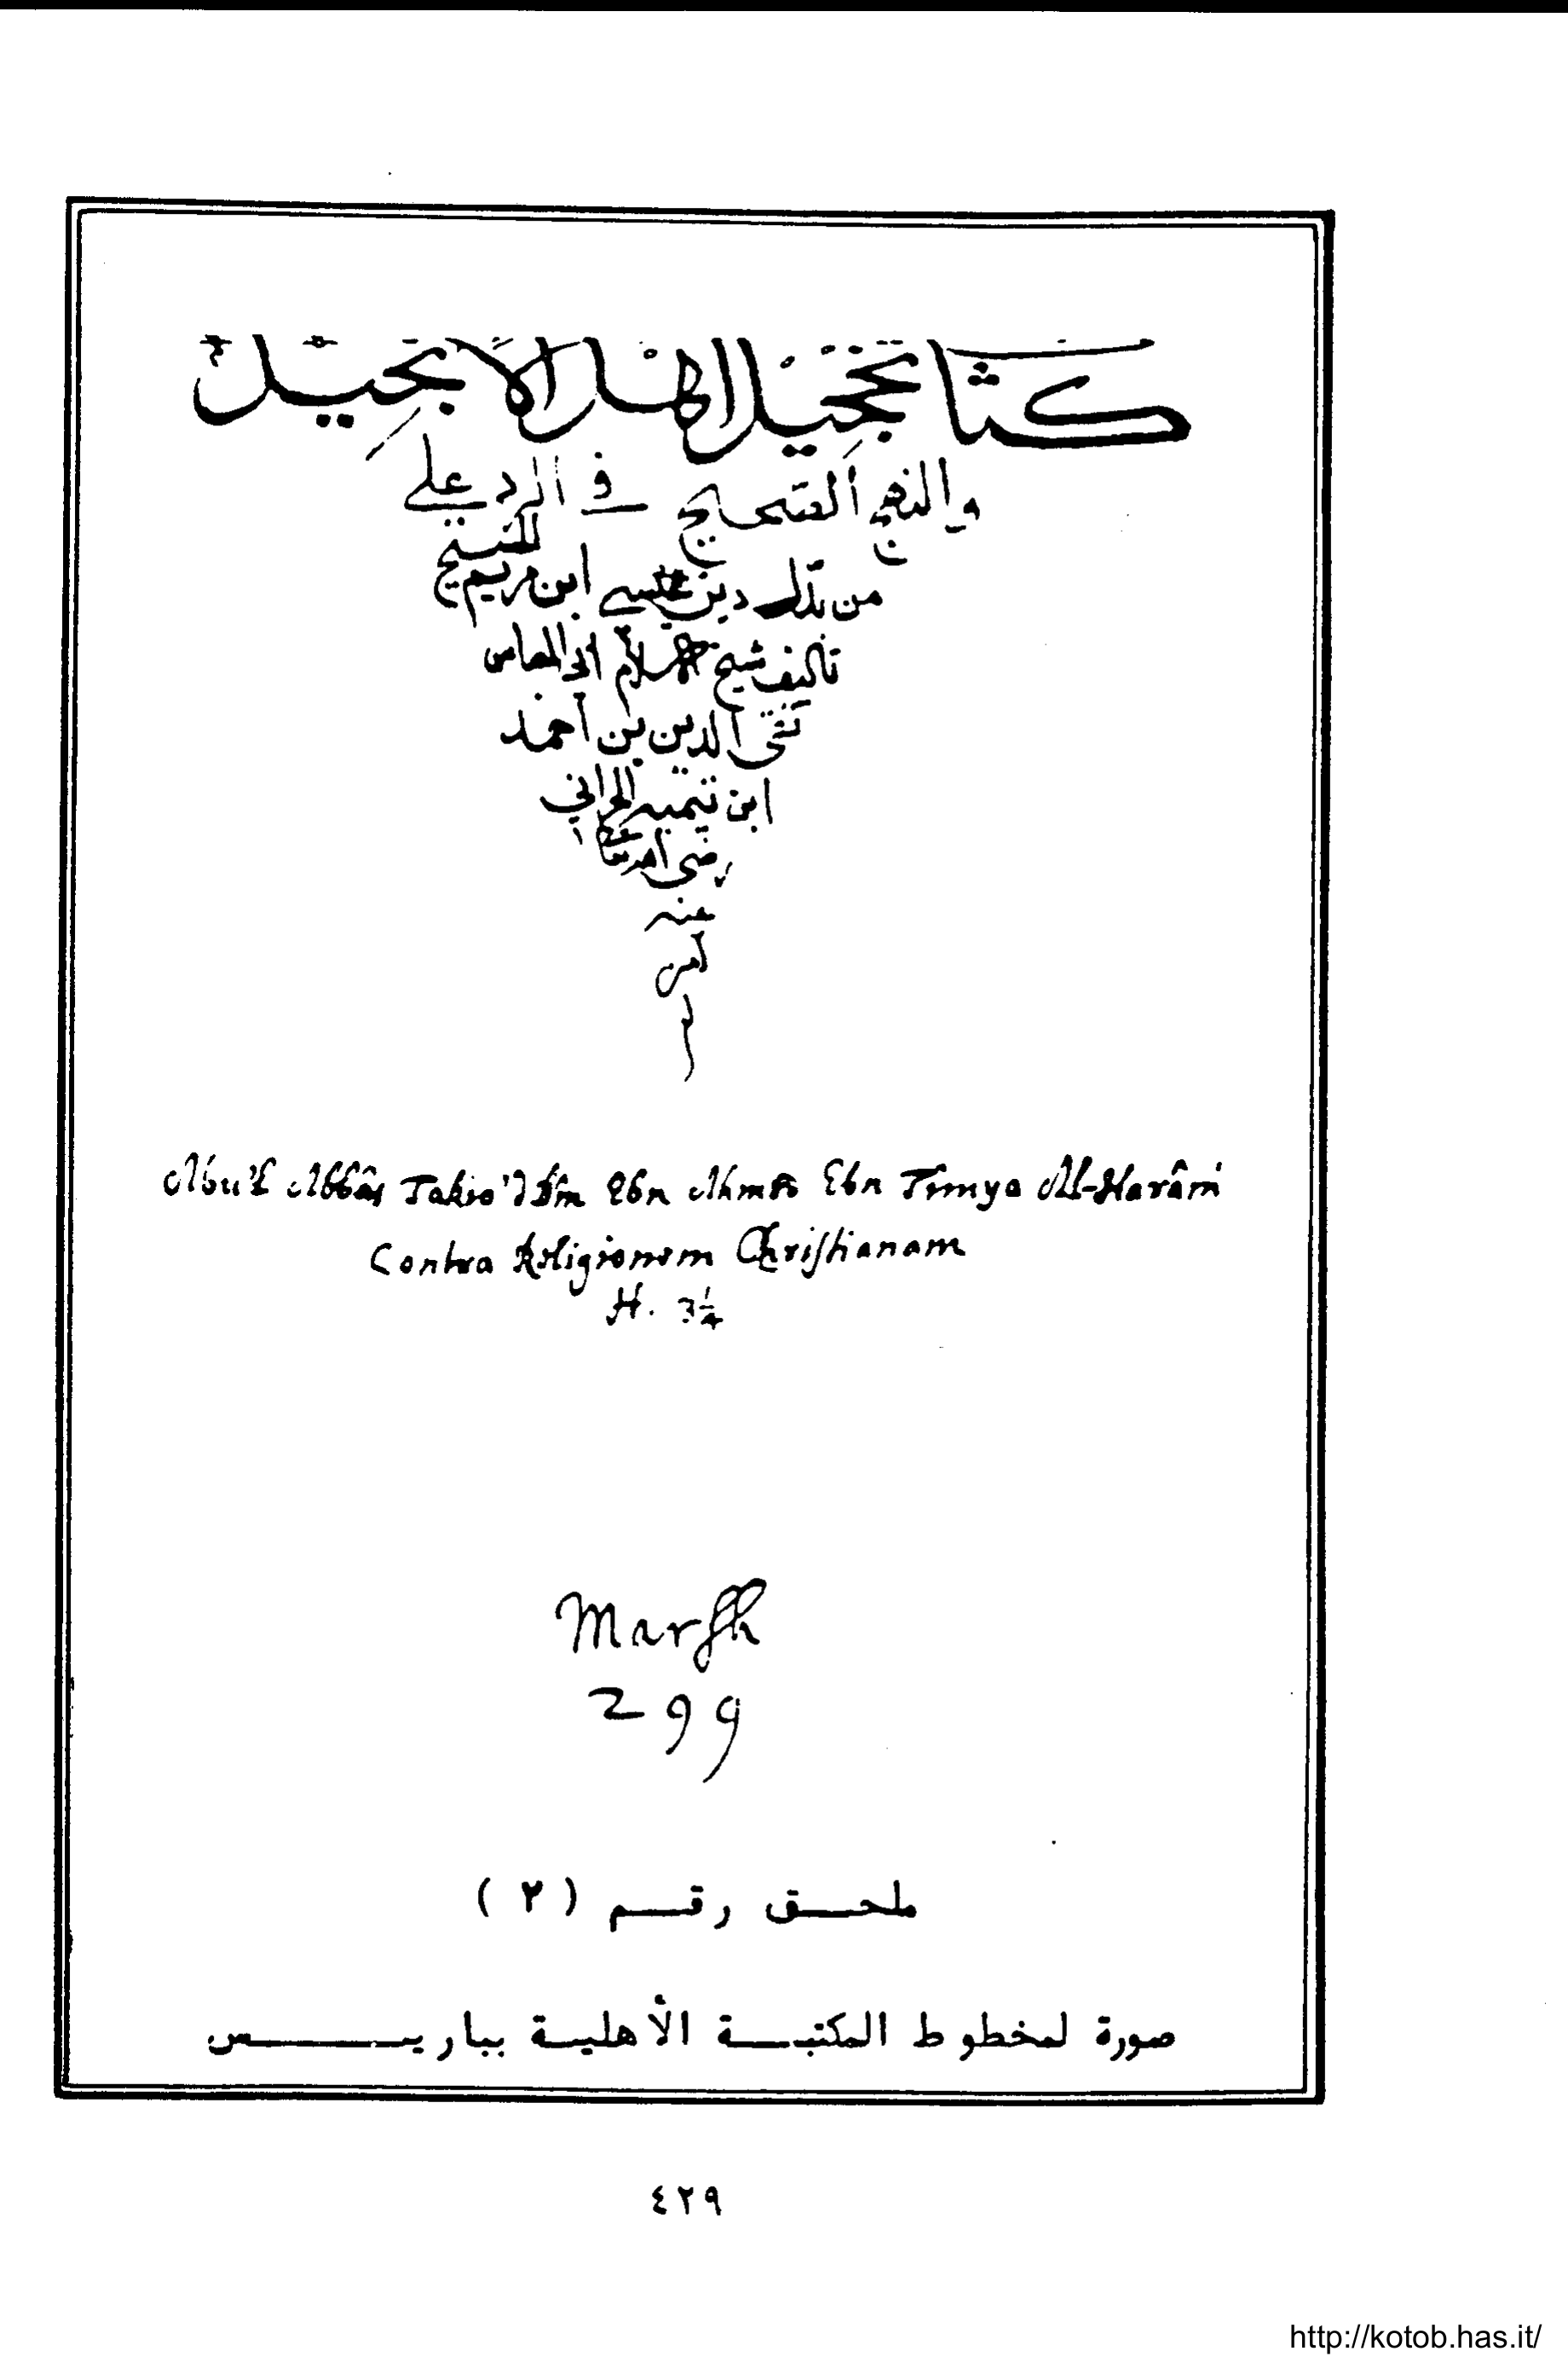 كتاب تخجيل اهل الانجيل
والنهج الصحيح في الرد على
من بدل دين عيسى ابن مريم المسيح
تاليف شيخ الاسلام ابي العباس
تقي الدين بن احمد
ابن تيميه الحراني
رضي الله تعالى
عنه
امين
Abu'l Abbâs Takio'ddîn Ebn Ahmed Ebn Timya Al-Harâni
Contra Religionem Christianam
H. 3¼
Marsh
299
ملحق رقم (٢)
صورة لمخطوط المكتبة الأهلية بباريس
٤٢٩
http://kotob.has.it/